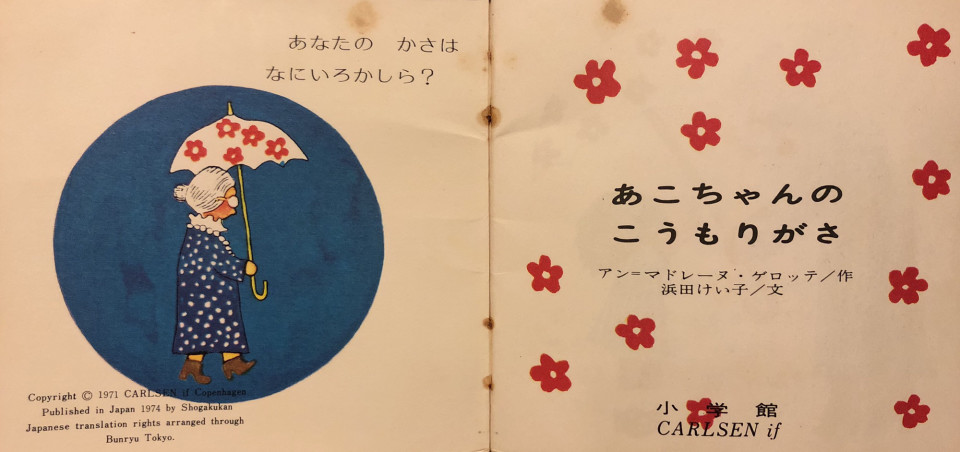 あなたの　かさは
なにいろかしら？
Copyright © 1971 CARLSEN if Copenhagen
Published in Japan 1974 by Shogakukan
Japanese translation rights arranged through
Bunryu Tokyo.
あこちゃんの
こうもりがさ
アン＝マドレーヌ・ゲロッテ／作
浜田けい子／文
小学館
CARLSEN if